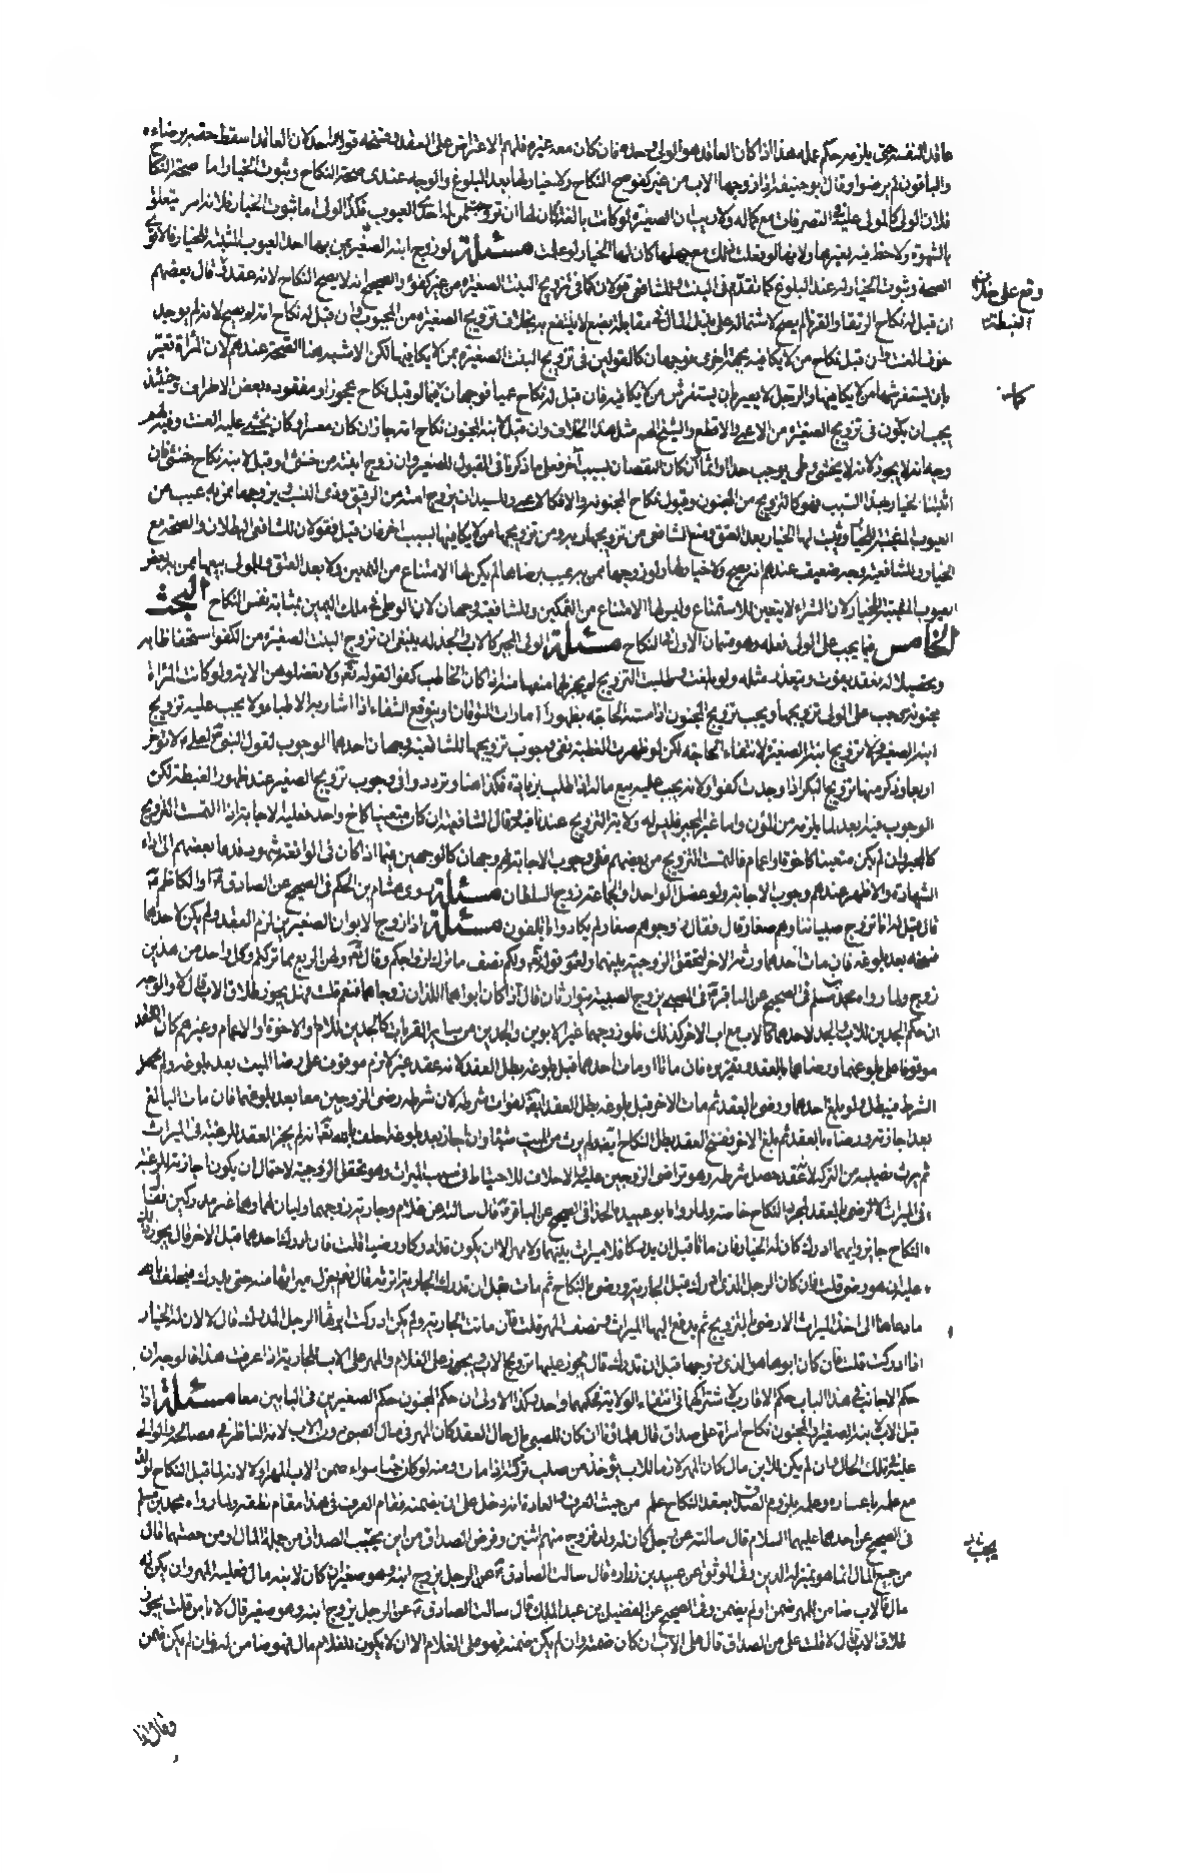 عاقد لنفسه حتى يلزمه حكم عمله هذا اذا كان العاقد هو الولى وحده فان كان معه غيره فلهم الاعتراض على العقد وفسخه قولا واحدا لان العاقد اسقط حقه برضاه
والباقون لم يرضوا وقال ابوحنيفة اذا زوجها الاب من غير كفو صح النكاح ولا خيار لها بعد البلوغ والوجه عندى صحة النكاح وثبوت الخيار اما صحة النكاح
فلان الولى كالمولى عليه فى التصرفات مع كماله ولا ريب ان الصغيرة لو كانت بالغة كان لها ان تزوج بمن له احد العيوب فكذا الولى اما ثبوت الخيار فلانه امر يتعلق
بالشهوة ولا حظ فيه بغيرها ولانها لو فعلت ذلك مع جهلها كان لها الخيار لو علمت مسئلة لو زوج ابنه الصغير بمن بها احد العيوب المثبتة للخيار فالاقوى
الصحة وثبوت الخيار له عند البلوغ كما تقدم فى البنت وللشافعى قولان كما فى تزويج البنت الصغيرة من غير كفو والصحيح انه لا يصح النكاح لانه عقد قال بعضهم
ان قبل له نكاح الرتقاء والقرناء لم يصح لاشتماله على بذل المال فى مقابلة بضع لا ينتفع به بخلاف تزويج الصغيرة من المجبوب وان قبل له نكاح امة لم يصح لانه لم يوجد
خوف العنت وان قبل نكاح من لا يكافيه بجهة اخرى فوجهان كالقولين فى تزويج البنت الصغيرة ممن لا يكافيها لكن الاشبه هنا الصحة عندهم لان المرأة تعير
بان يستفرشها من لا يكافيها والرجل لا يعير بان يستفرش من لا يكافيه فان قبل له نكاح عمياء فوجهان فيما لو قبل نكاح عجوز او مفقودة بعض الاطراف وحينئذ
يجب ان يكون فى تزويج الصغيرة من الاعمى والاقطع والشيخ الهم مثل هذا الخلاف وان قبل لابنه المجنون نكاح امة جاز ان كان معسرا وكان يخشى عليه العنت وفيه لهم
وجه انه لا يجوز لانه لا يخشى وطى يوجب حدا او اثما ان كان النقصان بسبب آخر فعلى ما ذكرنا فى القبول للصغير وان زوج ابنته من خنثى او قبل لابنه نكاح خنثى فان
اثبتنا الخيار بهذا السبب فهو كالتزويج من المجنون وقبول نكاح المجنونة والا فكالاعمى وللسيد ان يزوج امته من الرقيق ودنى النسب ولا يزوجها بمن به عيب من
العيوب المثبتة للخيار ويثبت لها الخيار بعد العتق ومنع الشافعى من تزويجها به ومن تزويجها من لا يكافيها بسبب اخر فان قبل فقولان للشافعى البطلان والصحة مع
الخيار وللشافعية وجه ضعيف عندهم انه يصح ولا خيار لها ولو زوجها ممن به عيب برضاها لم يكن لها الامتناع من التمكين ولا بعد العتق وللمولى بيعها ممن به بعض
العيوب المثبتة للخيار لان الشراء لا يتعين للاستمتاع وليس لها الامتناع من التمكين وللشافعية وجهان لان الوطى فى ملك اليمين بمثابة نفس النكاح البحث
الخامس فيما يجب على الولى فعله وهو قسمان الاول فى النكاح مسئلة الولى المجبر كالاب والجد له ينبغى ان تزوج البنت الصغيرة من الكفو استحفاظا به
وتحصيلا له فقد يفوت ويتعذر مثله ولو بلغت وطلبت التزويج لم يجز لها منعها منه اذا كان الخاطب كفوا لقوله تعالى ولا تعضلوهن الاية ولو كانت المرأة
مجنونة يجب على الولى تزويجها ويجب تزويج المجنون اذا مسته الحاجة بظهور امارات التوقان او بتوقع الشفاء اذا اشار به الاطباء ولا يجب عليه تزويج
ابنه الصغير ولا تزويج ابنته الصغيرة لانتفاء الحاجة لكن لو ظهرت الغبطة ففى وجوب تزويجها للشافعية وجهان احدهما الوجوب لقول النبى لعلى لا تؤخر
اربعا وذكر منها تزويج البكر اذا وجدت كفوا ولانه يجب عليه بيع ماله اذا طلب بزيادة فكذا هنا وتردد وافى وجوب تزويج الصغير عند ظهور الغبطة لكن
الوجوب فيه ابعد لما يلزمه من المؤن واما غير المجبر فليس له ولاية التزويج عندنا وقال الشافعية ان كان متعينا كاخ واحد فعليه الاجابة اذا التمست التزويج
كالمجبر وان لم يكن متعينا كاخوة او اعمام فالتمست التزويج من بعضهم ففى وجوب الاجابة لهم وجهان كالوجهين فيما اذا كان فى الواقعة شهود فدعا بعضهم الى اداء
الشهادة والاظهر عندهم وجوب الاجابة ولو عضل الواحد او الجماعة زوج السلطان مسئلة روى هشام بن الحكم فى الصحيح عن الصادق ع او الكاظم ع
قال قيل له انا نزوج صبياننا وهم صغار قال فقال اذا زوجوا وهم صغار لم يكادوا ان يأتلفوا مسئلة اذا زوج الابوان الصغيرين لزم العقد ولم يكن لاحدهما
فسخه بعد بلوغه فان مات احدهما ورثه الاخر لتحقق الزوجية بينهما ولعموم قوله تع ولكم نصف ما ترك ازواجكم وقال تع ولهن الربع مما تركتم وكل واحد من هذين
زوج ولما رواه محمد بن مسلم فى الصحيح عن الباقر ع فى الصبى يزوج الصبية يتوارثان قال اذا كان ابواهما اللذان زوجاهما فنعم قلت فهل يجوز طلاق الاب قال لا والوجه
ان حكم الجدين للاب والجد لاحدهما كالاب مع اب الاخر كذلك فلو زوجهما غير الابوين والجدين من ساير القربات كالجدين للام او الاخوة او الاعمام وغيرهم كان العقد
موقوفا على بلوغهما ورضاهما بالعقد وتقريره فان ماتا او مات احدهما قبل بلوغه بطل العقد لانه عقد غير لازم موقوف على رضا الميت بعد بلوغه ولم يحصل
الشرط فيبطل ولو بلغ احدهما ورضى بالعقد ثم مات الاخر قبل بلوغه بطل العقد ايضا لفوات شرطه لان شرطه رضى الزوجين معا بعد بلوغهما فان مات البالغ
بعد اجازته ورضاه بالعقد ثم بلغ الاخر ففسخ العقد بطل النكاح ايضا ولم يرث من الميت شيئا وان اجاز بعد بلوغه احلف بالله تعالى انه لم يجز العقد للرغبة فى الميراث
ثم يرث نصيبه من التركة لانه عقد حصل شرطه وهو تراضى الزوجين عليه والاحلاف للاحتياط فى سبب الميراث وهو تحقق الزوجية لاحتمال ان يكون اجازته للرغبة
فى الميراث لا للرضى بالعقد لمجرد النكاح خاصة ولما رواه ابو عبيدة الحذاء فى الصحيح عن الباقر ع قال سالته عن غلام وجارية زوجهما وليان لهما وهما غير مدركين فقال
النكاح جايز وايهما ادرك كان له الخيار فان ماتا قبل ان يدركا فلا ميراث بينهما ولا مهر الا ان يكون قد ادركا ورضيا قلت فان ادرك احدهما قبل الاخر قال يجوز ذلك
عليه ان هو رضى قلت فان كان الرجل الذى ادرك قبل الجارية ورضى بالنكاح ثم مات قبل ان تدرك الجارية اترثه قال نعم يعزل ميراثها منه حتى تدرك فتحلف بالله
ما دعاها الى اخذ الميراث الا رضى بالتزويج ثم يدفع اليها الميراث ونصف المهر قلت فان ماتت الجارية ولم يكن ادركت ايرثها الرجل المدرك قال لا لان لها الخيار
اذا ادركت قلت فان كان ابوها هو الذى زوجها قبل ان تدرك قال يجوز عليها تزويج الاب ويجوز على الغلام والمهر على الاب للجارية اذا عرفت هذا فالوجه ان
حكم الاجانب فى هذا الباب حكم الاقارب لاشتراكهما فى انتفاء الولاية فحكمهما واحد وكذا الاولى ان حكم المجنون حكم الصغيرين فى البابين معا مسئلة اذا
قبل الاب لابنه الصغير او المجنون نكاح امرأة على صداق قال علماؤنا ان كان للصبى مال حال العقد كان المهر فى مال الصبى دون الاب لانه الناظر فى مصالحه والوالى
عليه فى تلك الحال وان لم يكن للابن مال كان المهر لازما للاب يؤخذ من صلب تركته اذا مات ومنه لو كان حيا سواء ضمن الاب المهر او لا لانه لما قبل النكاح لولده
مع علمه باعساره وعلمه بلزوم الصداق بعقد النكاح علم من حيث العرف والعادة انه دخل على ان يضمنه فقام العرف فى هذا مقام نطقه ولما رواه محمد بن مسلم
فى الصحيح عن احدهما عليهما السلام قال سالته عن رجل كان له ولد فزوج منهم اثنين وفرض الصداق ثم مات من اين يحسب الصداق من جملة المال او من حصتهما قال
من جميع المال انما هو بمنزلة الدين وفى الموثق عن عبيد بن زرارة قال سالت الصادق ع عن الرجل يزوج ابنه وهو صغير ان كان لابنه مال فعليه المهر وان لم يكن له
مال فالاب ضامن للمهر ضمن او لم يضمن وفى الصحيح عن الفضل بن عبد الملك قال سالت الصادق ع عن الرجل يزوج ابنه وهو صغير قال لا باس قلت يجوز
طلاق الاب قال لا قلت على من الصداق قال على الاب ان كان ضمنه وان لم يكن ضمنه فهو على الغلام الا ان لا يكون للغلام مال فهو ضامن له وان لم يكن ضمن
وقال اذا